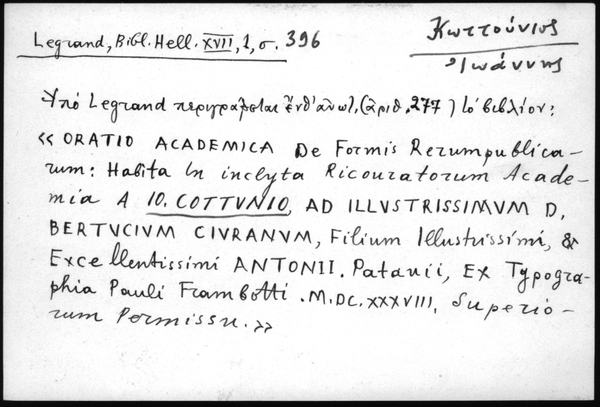 Legrand, Bibl. Hell. XVII, 1, σ. 396
Κωττούνιος
Ἰωάννης
Ὑπό Legrand περιγράφεται ἔνθ' ἀνωτ. (ἀριθ. 277) τὸ βιβλίον:
« ORATIO ACADEMICA De Formis Rerumpublica-
rum: Habita In inclyta Ricouratorum Acade-
mia A IO. COTTVNIO, AD ILLVSTRISSIMVM D.
BERTVCIVM CIVRANVM, Filium Illustrissimi, &
Excellentissimi ANTONII. Patauii, Ex Typogra-
phia Pauli Frambotti. M.DC.XXXVIII. Superio-
rum Permissu. »